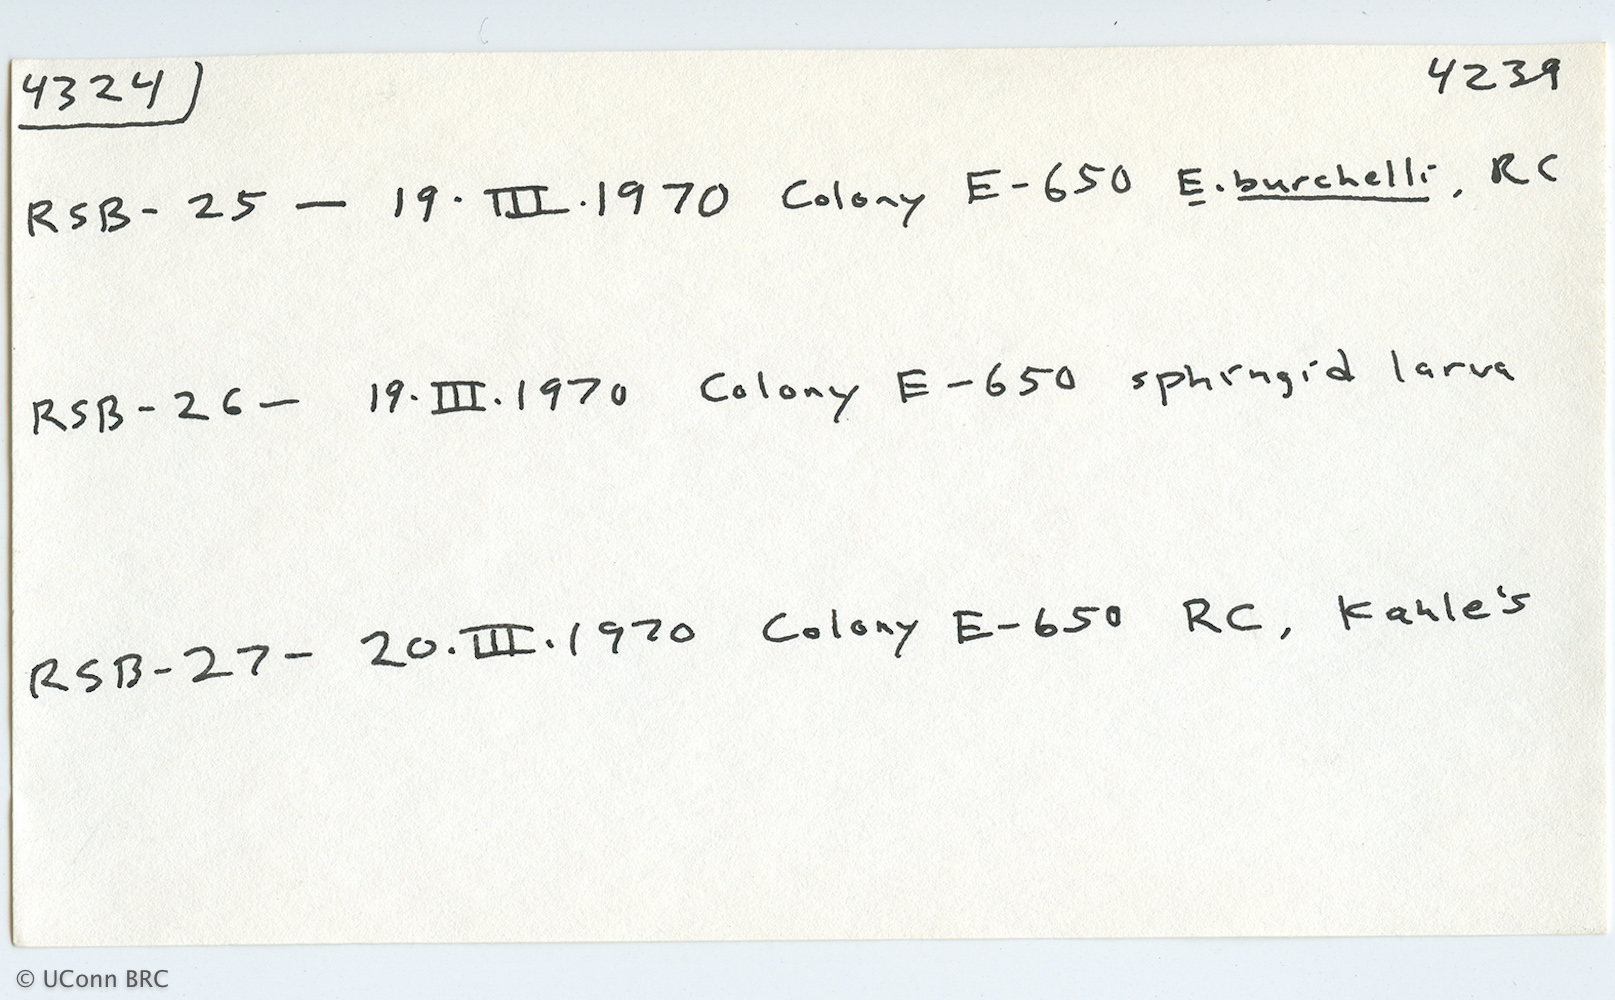 4324 4239
RSB-25 — 19.III.1970 Colony E-650 E. burchelli, RC
RSB-26 — 19.III.1970 Colony E-650 sphingid larva
RSB-27 - 20.III.1970 Colony E-650 RC, Kahle's
© UConn BRC